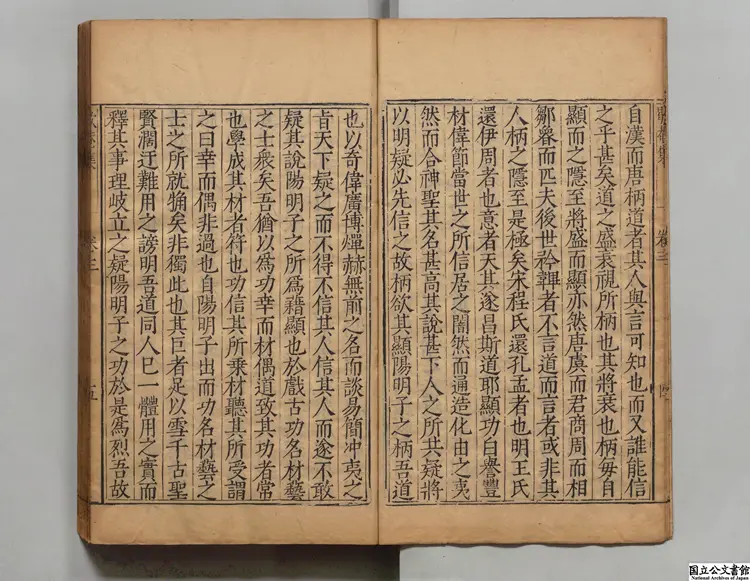 自漢而唐柄道者其人與言可知也而又誰能信
之乎甚矣道之盛衰視所柄也其將衰也柄每自
顯而之隱至將盛而顯亦然唐虞而君商周而相
鄒魯而匹夫後世衿鞸者不言道而言者或非其
人柄之隱至是極矣宋程氏還孔孟者也明王氏
還伊周者也意者天其遂昌斯道耶顯功自譽豐
材偉節當世之所信居之闇然而通造化由之夷
然而合神聖其名甚高其說甚下人之所共疑將
以明疑必先信之故柄欲其顯陽明子之柄吾道
卷三
也以奇偉廣博燀赫無前之名而談易簡冲夷之
㫖天下疑之而不得不信其人信其人而遂不敢
疑其說陽明子之所爲藉顯也於戲古功名材藝
之士衆矣吾猶以爲功幸而材偶道致其功者常
也學成其材者符也功信其所乗材聽其所受謂
之曰幸而偶非過也自陽明子出而功名材藝之
士之所就觕矣非獨此也其巨者足以雪千古聖
賢濶迂難用之謗明吾道同人巳一體用之實而
釋其事理岐立之疑陽明子之功於是爲烈吾故
卷三
五
国立公文書館
National Archives of Japan